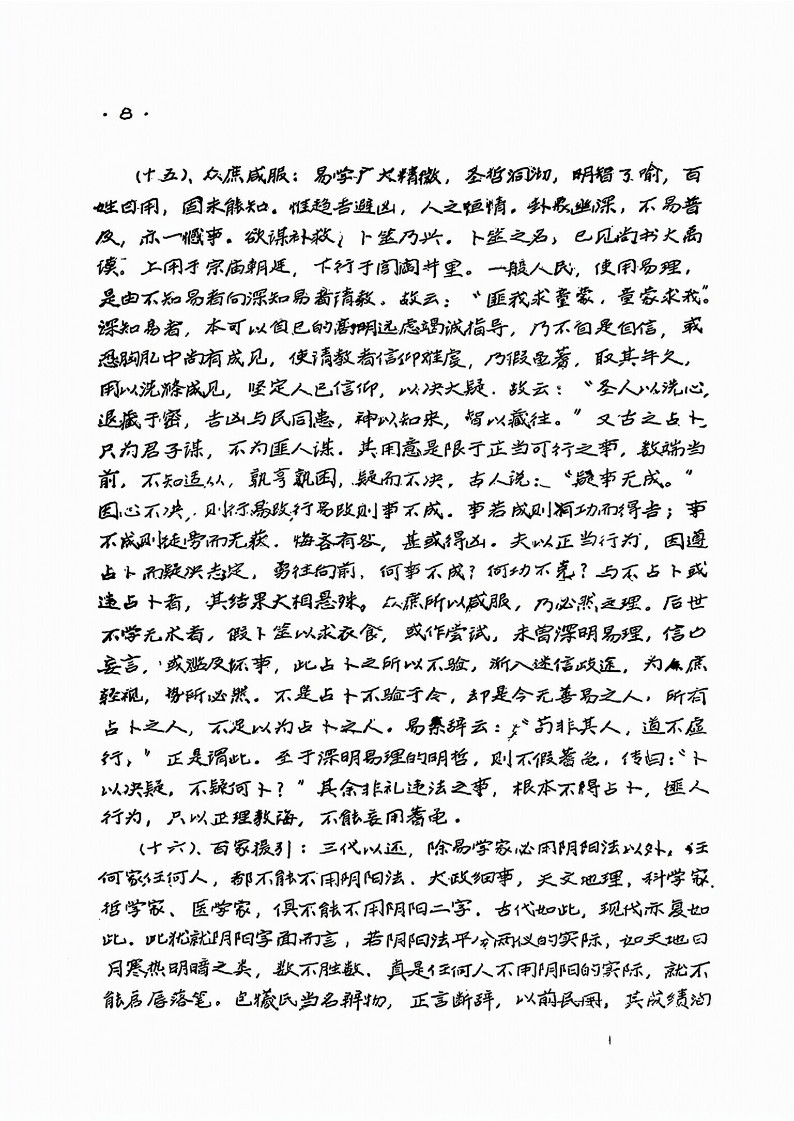 ·8·
(十五)、众庶咸服：易学广大精微，圣哲洞彻，明智了喻，百
姓日用，固未能知。惟趋吉避凶，人之恒情。卦象幽深，不易普
及，亦一憾事。欲谋补救，卜筮乃兴。卜筮之名，已见尚书大禹
谟。上用于宗庙朝廷，下行于闾阎井里。一般人民，使用易理，
是由不知易者向深知易者请教．故云：“匪我求童蒙，童蒙求我”。
深知易者，本可以自己的高明远虑竭诚指导，乃不自是自信，或
恐胸臆中尚有成见，使请教者信仰难度，乃假蓍，取其年久，
用以洗涤成见，坚定人己信仰，以决大疑．故云：“圣人以洗心，
退藏于密，吉凶与民同患，神以知来，智以藏往。”又古之占卜
只为君子谋，不为匪人谋．其用意是限于正当可行之事，数端当
前，不知适从，孰亨孰困，疑而不决，古人说：“疑事无成。”
因心不决，则行易改，行易改则事不成．事若成则有功而得吉；事
不成则徒劳而无获．悔吝有咎，甚或得凶．夫以正当行为，因遵
占卜而疑决志定，勇往向前，何事不成？何功不克？与不占卜或
违占卜者，其结果大相悬殊。众庶所以咸服，乃必然之理。后世
不学无术者，假卜筮以求衣食，或作尝试，未曾深明易理，信口
妄言，或滥及坏事，此占卜之所以不验，渐入迷信歧途，为众庶
轻视，势所必然．不是占卜不验于今，却是今无善易之人，所有
占卜之人，不足以为占卜之人．易系辞云：“苟非其人，道不虚
行，”正是谓此．至于深明易理的明哲，则不假蓍龟，传曰：“卜
以决疑，不疑何卜？”其余非礼违法之事，根本不得占卜，匪人
行为，只以正理教诲，不能妄用蓍龟．
(十六)、百家援引：三代以还，除易学家必用阴阳法以外，任
何家任何人，都不能不用阴阳法．大政细事，天文地理，科学家．
哲学家、医学家，俱不能不用阴阳二字．古代如此，现代亦复如
此．此犹就阴阳字面而言，若阴阳法平分两仪的实际，如天地日
月寒热明暗之类，数不胜数．真是任何人不用阴阳的实际，就不
能启唇落笔．包牺氏当名辨物，正言断辞，以前民用，其成绩洵